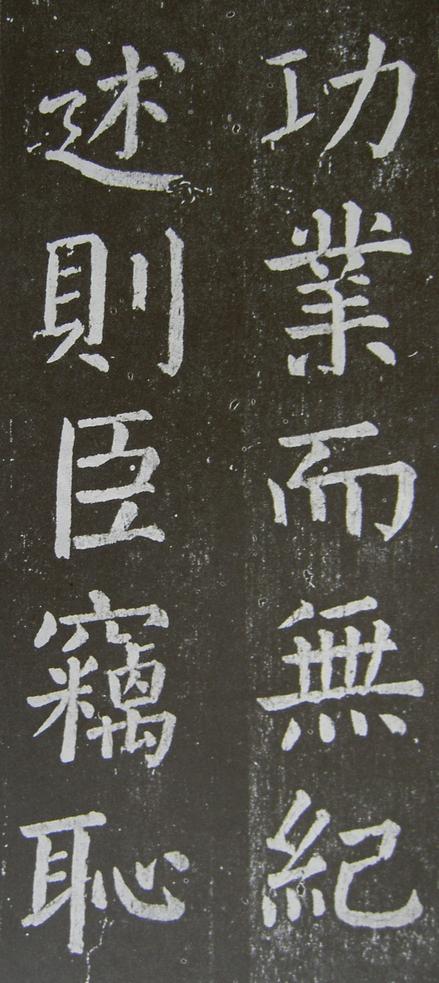 功業而無紀
述則臣竊恥